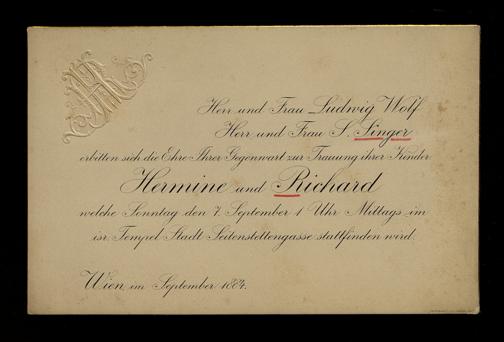 Herr und Frau Ludwig Wolf
Herr und Frau S. Singer
erbitten sich die Ehre Ihrer Gegenwart zur Trauung ihrer Kinder
Hermine und Richard
welche Sonntag den 7. September 1 Uhr Mittags im
isr. Tempel Stadt Seitenstettengasse stattfinden wird.
Wien im September 1884.